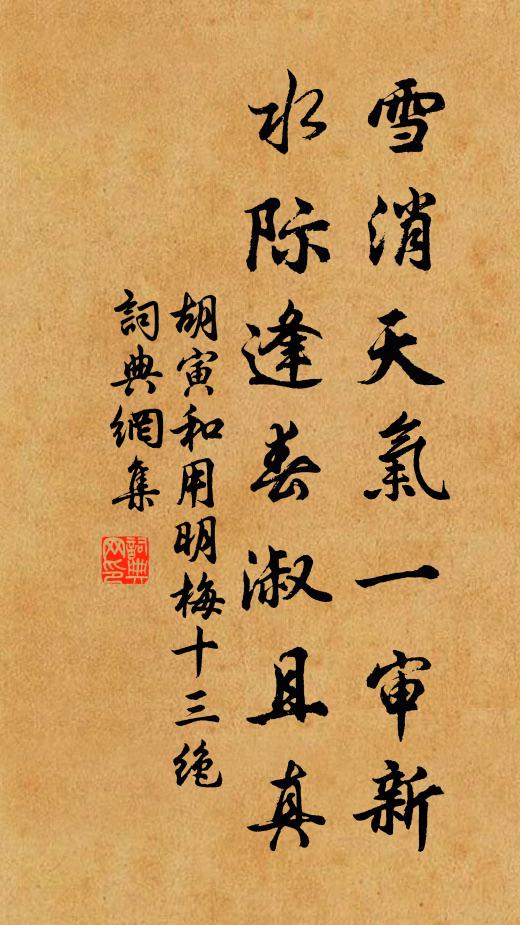 雪消天氣一审新
水际逢春淑且真
胡寅和用明梅十三绝
詞典網集
詞典网印